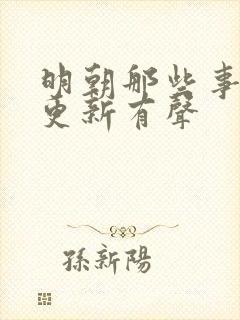 明朝那些事
更新有聲
孫新陽